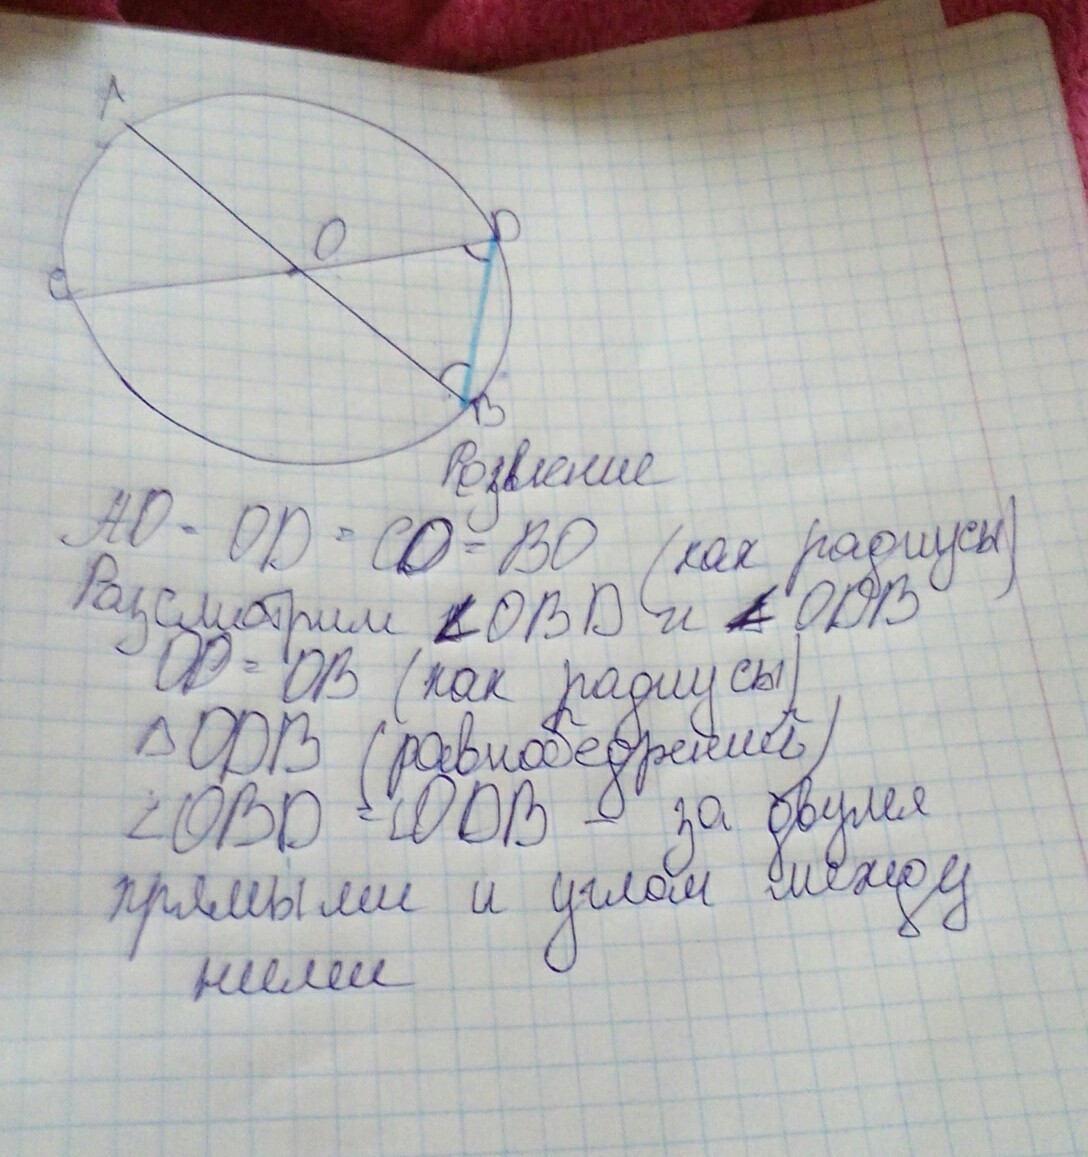 A
O
D
C
B
Розвление
AO = OD = CO = BO (как радиусы)
Разсмотрим ∠OBD и ∠ODB
OD = OB (как радиусы)
Δ ODB (равнобедрений)
∠OBD = ∠ODB - за двумя
прямыми и углом между
ними